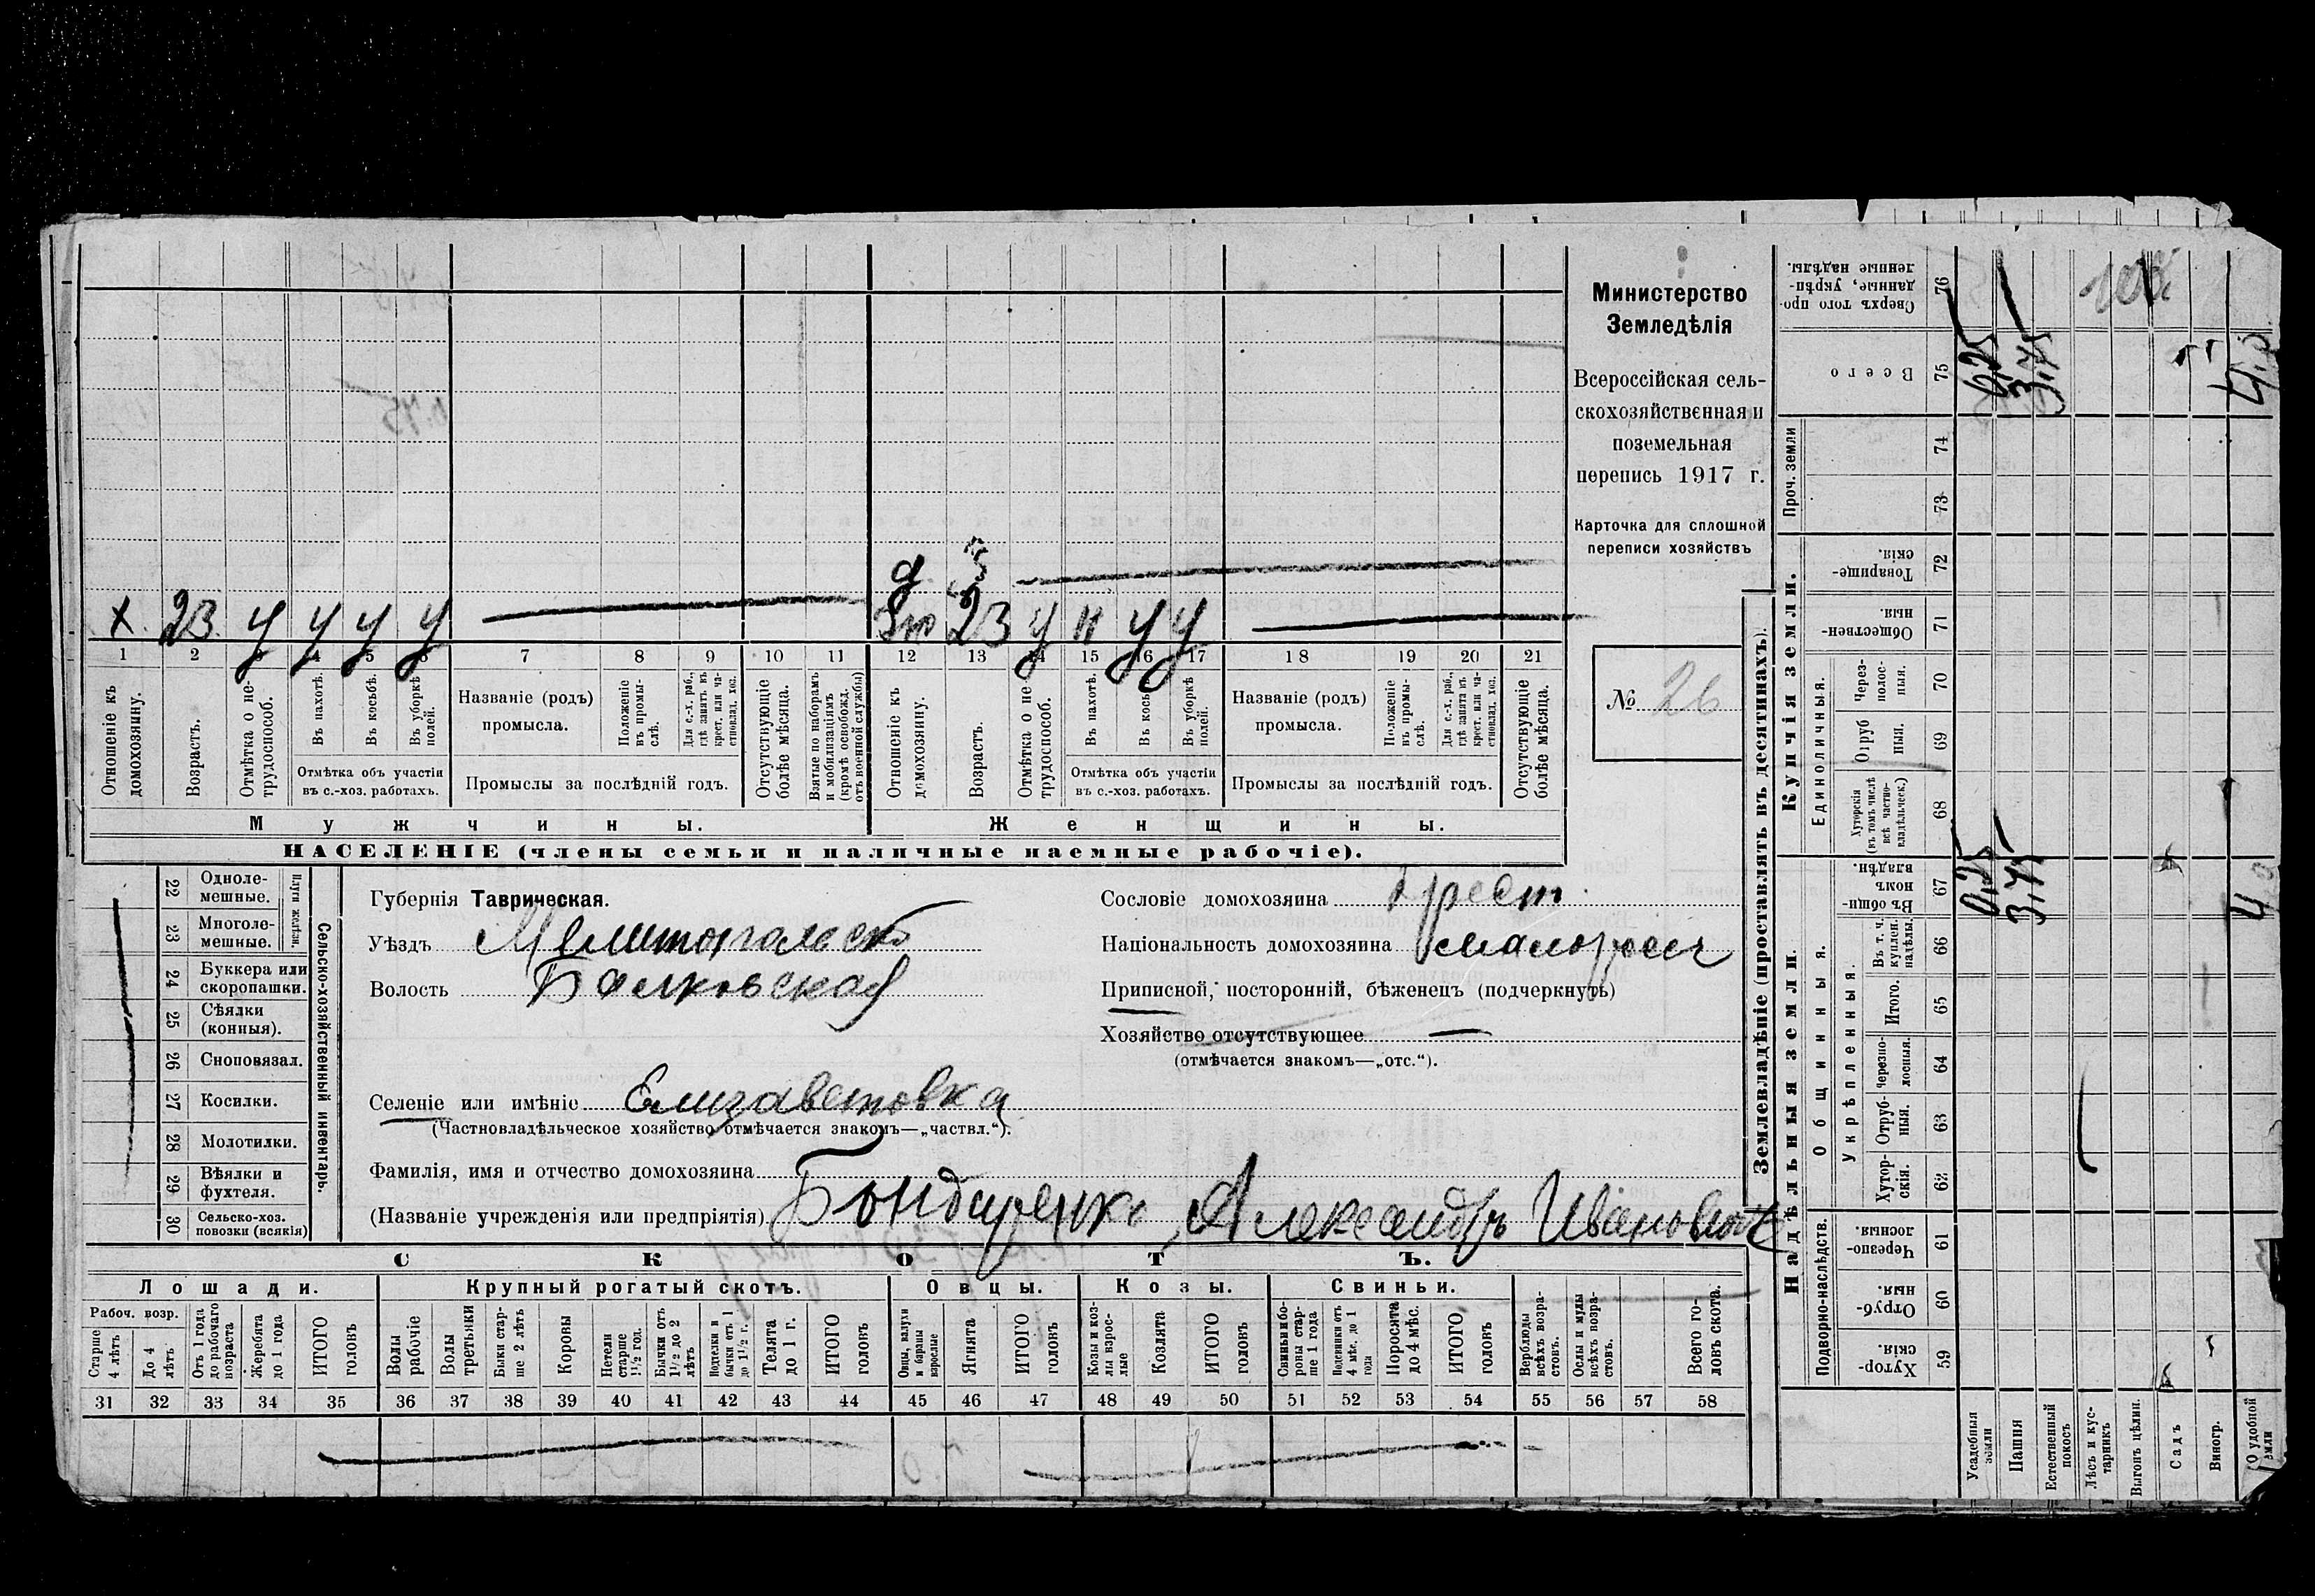 Министерство
Земледѣлія
Всероссійская сель-
скохозяйственная и
поземельная
перепись 1917 г.
Карточка для сплошной
переписи хозяйствъ
№ 26
д 3
х. 23 у у у у
23 у н у у
1 2 3 4 5 6 7 8 9 10 11 12 13 14 15 16 17 18 19 20 21
Отношеніе къ домохозяину.
Возрастъ.
Отмѣтка о не-трудоспособ.
Въ пахотѣ.
Въ косьбѣ.
Въ уборкѣ полей.
Отмѣтка объ участіи
въ с.-хоз. работахъ.
Названіе (родъ)
промысла.
Положеніе въ промы-слѣ.
Для с.-х. раб., гдѣ занятъ въ крест. или ча-стновлад. хоз.
Промыслы за послѣдній годъ.
Отсутствующіе болѣе мѣсяца.
Взятые по наборамъ и мобилизаціямъ (кромѣ освобожд. отъ военной службы)
Отношеніе къ домохозяину.
Возрастъ.
Отмѣтка о не трудоспособ.
Въ пахотѣ.
Въ косьбѣ
Въ уборкѣ полей.
Отмѣтка объ участіи
въ с.-хоз. работахъ.
Названіе (родъ)
промысла.
Положеніе въ промы-слѣ.
Для с.-х. раб., гдѣ занята въ крест. или ча-стновлад. хоз.
Промыслы за послѣдній годъ.
Отсутствующіе болѣе мѣсяца.
Мужчины.
Женщины.
НАСЕЛЕНІЕ (члены семьи и наличные наемные рабочіе).
22 Одноле-мешные.
23 Многоле-мешные.
Плуги желѣзн.
24 Буккера или скоропашки.
25 Сѣялки (конныя).
26 Сноповязал.
27 Косилки.
28 Молотилки.
29 Вѣялки и фухтеля.
30 Сельско-хоз. повозки (всякія)
Сельско-хозяйственный инвентарь.
Губернія Таврическая.
Уѣздъ Мелитопольск
Волость Балковская
Селеніе или имѣніе Елизаветовка
(Частновладѣльческое хозяйство отмѣчается знакомъ—„частвл.“).
Фамилія, имя и отчество домохозяина
(Названіе учрежденія или предпріятія) Бондаренко Александръ Ивановичъ
Сословіе домохозяина крест.
Національность домохозяина малоросс
Приписной, посторонній, бѣженецъ (подчеркнуть)
Хозяйство отсутствующее —
(отмѣчается знакомъ—„отс.“).
СКОТЪ.
Лошади. Крупный рогатый скотъ. Овцы. Козы. Свиньи.
Рабоч. возр.
Старше 4 лѣтъ
До 4 лѣтъ
Отъ 1 года до рабочаго возраста
Жеребята до 1 года
ИТОГО головъ
Волы рабочіе
Волы третьяки
Быки стар-ше 2 лѣтъ
Коровы
Нетели старше 1½ год.
Бычки отъ 1½ до 2 лѣтъ
Подтелки и бычки отъ 1 до 1½ г.
Телята до 1 г.
ИТОГО головъ
Овцы, валухи и бараны взрослые
Ягнята
ИТОГО головъ
Козы и коз-лы взрос-лые
Козлята
ИТОГО головъ
Свиньи и бо-ровы стар-ше 1 года
Подсвинки отъ 4 мѣс. до 1 года
Поросята до 4 мѣс.
ИТОГО головъ
Верблюды всѣхъ возра-стовъ.
Ослы и мулы всѣхъ возра-стовъ.
Всего го-ловъ скота.
31 32 33 34 35 36 37 38 39 40 41 42 43 44 45 46 47 48 49 50 51 52 53 54 55 56 57 58
Землевладѣніе (проставлять въ десятинахъ).
Надѣльныя земли. Купчія земли. Проч. земли
Подворно-наслѣдств.
Общинныя.
Укрѣпленныя.
Единоличныя.
76 Сверхъ того про-данные, укрѣп-ленные надѣлы.
75 Всего 0,25 3,75 4,0
74
73
72 Товарище-скія.
71 Обществен-ныя.
70 Через-полос-ныя.
69 Отруб ныя.
68 Хуторскія (въ томъ числѣ всѣ частно-владѣльческ.)
67 Въ общи-номъ владѣн. 0,25 3,75 4,0
66 Въ т. ч. куплен. надѣлы.
65 Итого.
64 Черезпо-лосныя.
63 Отруб-ныя.
62 Хутор-скія.
61 Черезпо-лосныя.
60 Отруб-ныя.
59 Хутор-скія.
Усадебныя земли
Пашня
Естественный покосъ
Лѣсъ и кус-тарникъ
Выгонъ цѣлин.
Садъ
Виногр.
О удобной земли